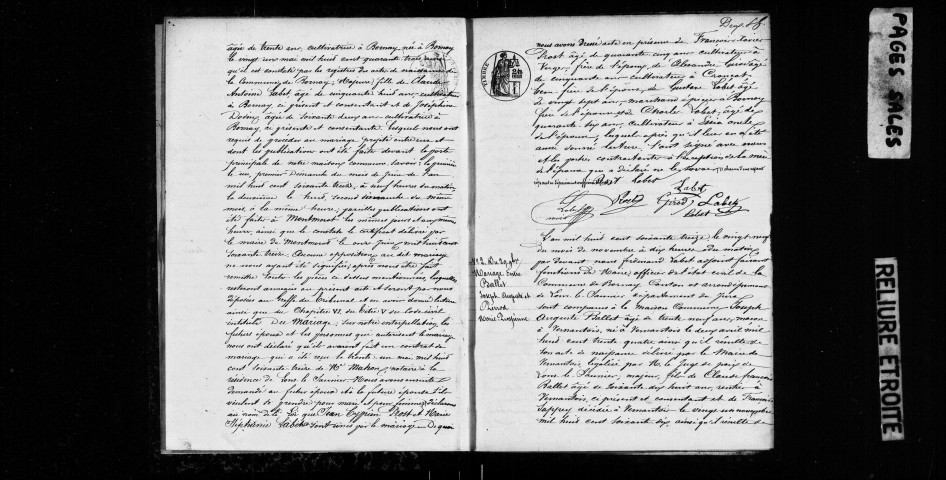 âgée de trente ans, cultivatrice à Bornay, née à Bornay
le vingt un mai mil huit cent quarante trois ainsi
qu'il est constaté par les registres des actes de naissance de
la Commune de Bornay, Majeure, fille de Claude
Antoine Labet, âgé de cinquante huit ans, cultivateur
à Bornay, ci présent et consentant et de Joséphine
âgée de soixante deux ans, cultivatrice à
Bornay, ci présente et consentante lesquels nous ont
requis de procéder au mariage projeté entre eux et
dont les publications ont été faites devant la porte
principale de notre maison commune, savoir : la première
le un, premier Dimanche du mois de juin de l'an
mil huit cent soixante treize, à neuf heures du matin,
la deuxième le huit, second dimanche du même
mois, à la même heure, pareilles publications ont
été faites à Montmorot les mêmes jours et aux mêmes
heures, ainsi que le constate le certificat délivré par
le maire de Montmorot le onze juin, mil huit cent
soixante treize. Aucune opposition au dit mariage
ne nous ayant été signifiée, après nous être fait
remettre toutes les pièces ci dessus mentionnées, lesquelles
resteront annexées au présent acte et seront par nous
déposées au Greffe du Tribunal et en avoir donné lecture
ainsi que du Chapitre VI du titre V du Code civil
intitulé Du Mariage, sur notre interpellation, les
futurs époux et les personnes qui autorisent le mariage
nous ont déclaré qu'il avaient fait un contrat de
mariage qui a été reçu le trente un mai mil huit
cent soixante treize de Me Mathon, notaire à la
résidence de Lons le Saunier. Nous avons ensuite
demandé au futur époux et à la future épouse s'ils
veulent se prendre pour mari et pour femme, déclarons
au nom de la loi que Jean Cyprien Prost et Marie
Stéphanie Labet sont unis par le mariage. De quoi
Deux
nous avons dressé acte en présence de François Xavier
Prost âgé de quarante cinq ans cultivateur à
Verges, frère de l'époux, de Alexandre Girod âgé
de cinquante ans cultivateur à Crançot,
beau-frère de l'épouse, de Gustave Labet âgé
de vingt sept ans, marchand épicier à Bornay
frère de l'épouse et de Charles Labet, âgé de
quarante six ans, cultivateur à oncle
de l'épouse, lesquels après qu'il leur en a été
aussi donné lecture, l'ont signé avec nous
et les parties contractantes à l'exception de la mère
de l'épouse qui a déclaré ne le savoir
Prost Labet
Labet
Prost Girod Labet
Labet
TIMBRE
N° 2. Du 29 9bre
Mariage entre
Ballet
Joseph Auguste et
Marie
L'an mil huit cent soixante treize le vingt neuf
du mois de novembre à dix heures du matin
par devant nous Ferdinand Labet adjoint faisant
fonctions de Maire officier de l'état civil de la
Commune de Bornay Canton et arrondissement
de Lons le Saunier, département du Jura
sont comparus à la maison Commune Joseph
Auguste Ballet âgé de trente neuf ans, maçon
à Vernantois, né à Vernantois le deux avril mil
huit cent trente quatre ainsi qu'il résulte de
son acte de naissance délivré par le Maire de
Vernantois légalisé par M. le Juge de paix de
Lons le Saunier, majeur, fils de Claude François
Ballet âgé de soixante dix huit ans, rentier à
Vernantois, ci présent et consentant et de Françoise
décédée à Vernantois le vingt un novembre
mil huit cent soixante dix, ainsi qu'il résulte de
PAGES SALES
RELIURE ETROITE